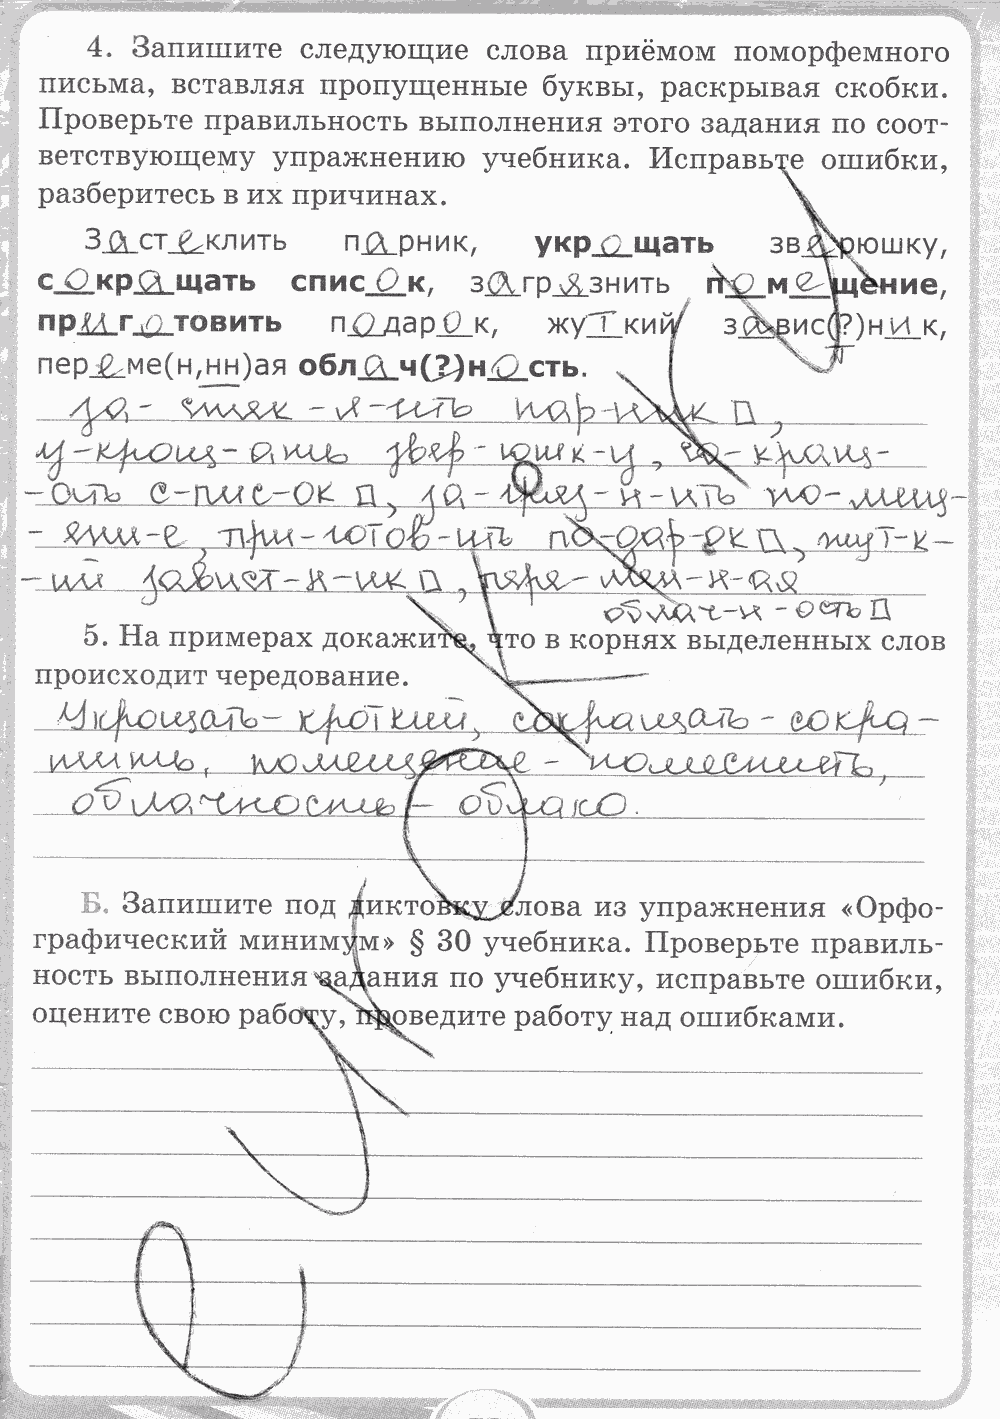 4. Запишите следующие слова приёмом поморфемного
письма, вставляя пропущенные буквы, раскрывая скобки.
Проверьте правильность выполнения этого задания по соот-
ветствующему упражнению учебника. Исправьте ошибки,
разберитесь в их причинах.
Застеклить парник, укрощать зверюшку,
сокращать список, загрязнить помещение,
приготовить подарок, жуткий завис(?)тник,
переме(н,нн)ая облач(?)ность.
за- стек -л-ить пар-ник □,
у-крощ-ать звер-юшк-у, со-кращ-
-ать с-пис-ок □, за-гряз-н-ить по-мещ-
- ени-е, при-готов-ить по-дар-ок □, жут-к-
-ий завист-н-ик □, пере-мен-н-ая
облач-н-ость □
5. На примерах докажите, что в корнях выделенных слов
происходит чередование.
Укрощать- кроткий, сокращать - сокра-
тить, помещение - поместить,
облачность - облако.
Б. Запишите под диктовку слова из упражнения «Орфо-
графический минимум» § 30 учебника. Проверьте правиль-
ность выполнения задания по учебнику, исправьте ошибки,
оцените свою работу, проведите работу над ошибками.